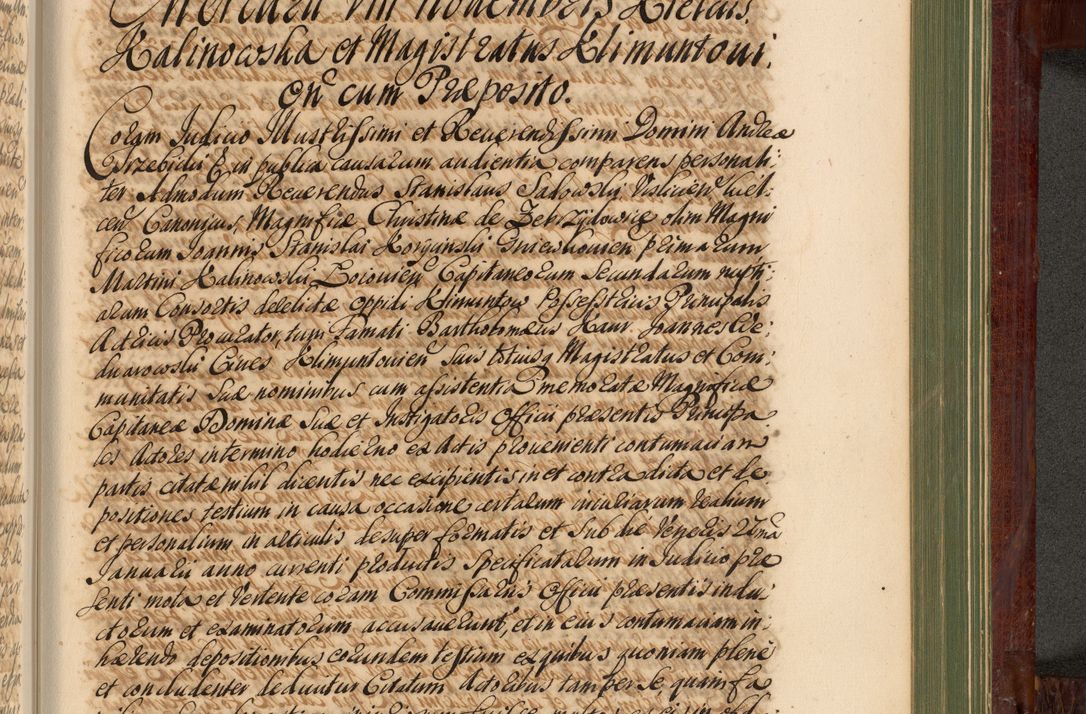 Mercurii VIII Novembris Kielciis.
Kalinowska et Magistratus Klimuntoui:
en̄ cum Præposito.
Coram Judicio Illustrissimi et Reuerendissimi Domini Andreæ
Trzebicki E in publica causarum audientia comparens personali:
ter Admodum Reuerendus Stanislaus Sadowski Vislicien̄ Kiel:
cen̄ Canonicus, Magnificæ Christinæ de Zebrzydowice olim Magni
ficorum Joannis Stanislai Korycinski Gniewkouien primarum
Martini Kalinowski Capitaneorum Secundarum nupti:
arum Consortis derelictæ oppidi Klimuntow Possessatricis Principalis
Actricis Procurator, tum Famati Bartholomæus Kaur Joannes
Ciues Klimuntouien̄ suis totiusq Magistratus et Com:
munitatis suæ nominibus cum assistentia memoratæ Magnificæ
Capitaneæ Dominæ suæ et Instigatoris Officii præsentis Principa
les Actores in termino hodierno ex Actis prouenienti contumaciam
partis citatæ nihil dicentis nec excipientis in et contra dicta et de
positiones testium in causa occasione certarum iniuriarum realium
et personalium in articulis desuper formatis et sub die Veneris 27ma
Januarii anno currenti productis Specificatarum in Judicio præ
senti mota et vertente coram Commissariis Officii præsentis indu:
ctorum et examinatorum accusauerunt, et in eius contumaciam in:
hærendo depositionibus eorundem testium ex quibus quoniam plene
et concludenter deducitur Citatum Actoribus tam per se, quam fa